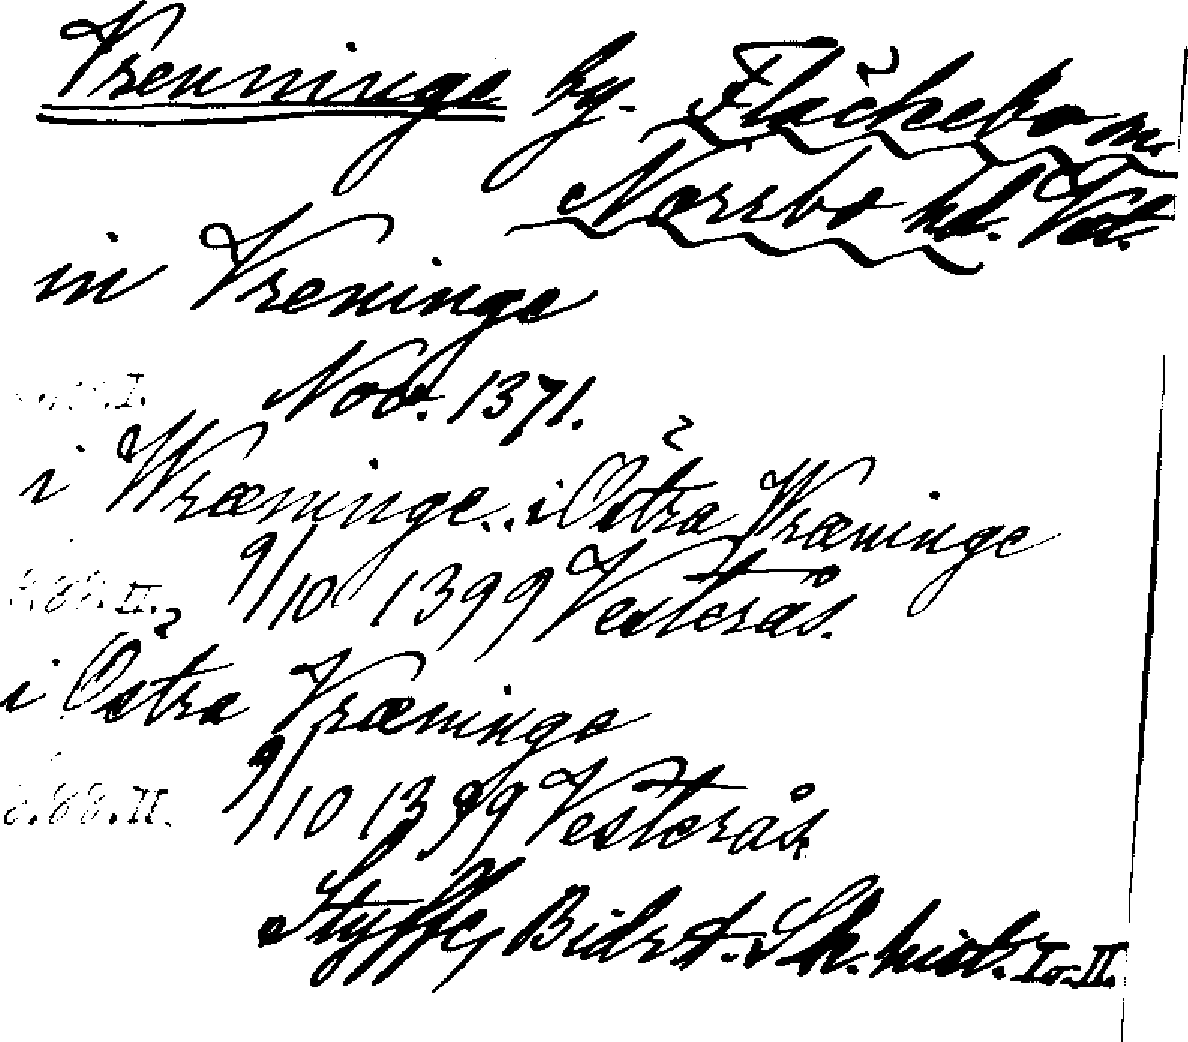 Vrenninge by. Fläckebo sn.
Norrbo hd. Vstm.
in Vreninge
I. Nov. 1371.
i Wræninge.. i Östra Vræninge
s.88.II. 9/10 1399 Vesterås.
i Östra Vræninge
s.88.II. 9/10 1399 Vesterås.
Styffe, Bidr. t. Sk. hist. I-II.